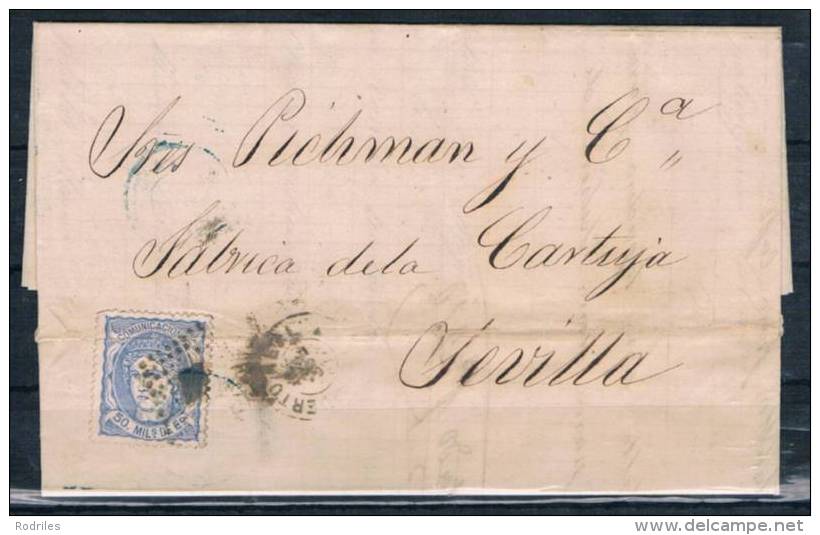 Sres Pickman y Cª
Fabrica dela Cartuja
Sevilla
COMUNICACIONES
50. MILS DE ES
Rodriles
http://www.delcampe.net